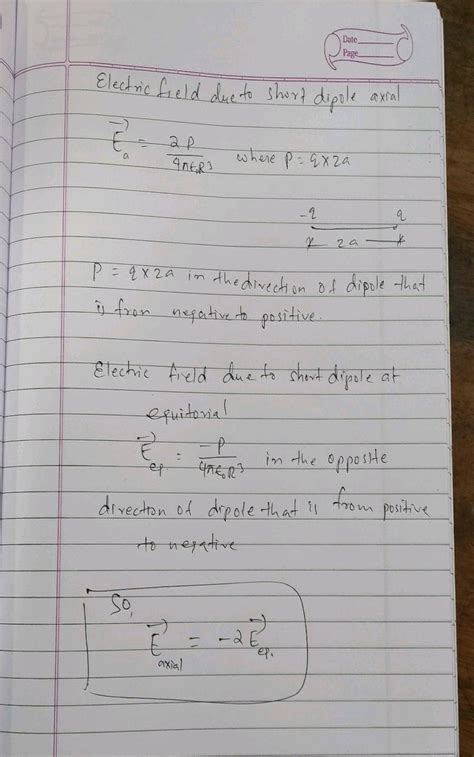 Date
Page
Electric field due to short dipole axial
E⃗a = 2P / 4πε0R³ where P = q×2a
-q q
2a
P = q×2a in the direction of dipole that
is from negative to positive.
Electric field due to short dipole at
equitorial
E⃗ep. = -P / 4πε0R³ in the opposite
direction of dipole that is from positive
to negative
So,
E⃗axial = -2E⃗ep.